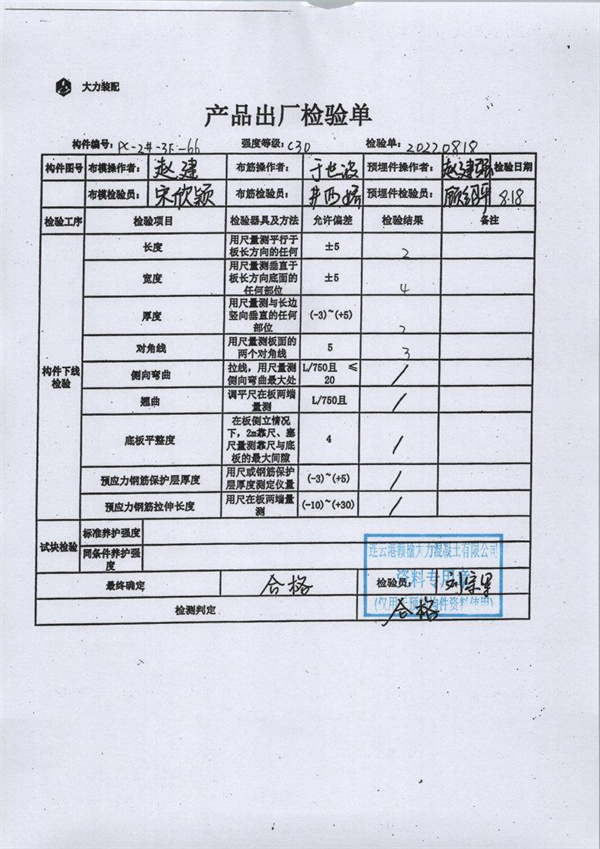 大力装配
产品出厂检验单
构件编号: PC-2#-3F-66 强度等级: C30 检验单: 20220818
构件图号 布模操作者: 赵建 布筋操作者: 于世波 预埋件操作者: 赵建强 检验日期
布模检验员: 宋欣颖 布筋检验员: 预埋件检验员: 8.18
检验工序 检验项目 检验器具及方法 允许偏差 检验结果 备注
构件下线检验
长度 用尺量测平行于板长方向的任何 ±5 2
宽度 用尺量测垂直于板长方向底面的任何部位 ±5 4
厚度 用尺量测与长边竖向垂直的任何部位 (-3)~(+5) 2
对角线 用尺量测板面的两个对角线 5 3
侧向弯曲 拉线,用尺量测侧向弯曲最大处 L/750且 ≤20 /
翘曲 调平尺在板两端量测 L/750且 /
底板平整度 在板侧立情况下,2m靠尺、塞尺量测靠尺与底板的最大间隙 4 /
预应力钢筋保护层厚度 用尺或钢筋保护层厚度测定仪量 (-3)~(+5) /
预应力钢筋拉伸长度 用尺在板两端量测 (-10)~(+30) /
试块检验 标准养护强度
同条件养护强度
连云港赣榆大力混凝土有限公司
资料专用章
(仅用于预制构件资料使用)
最终确定 合格 检验员:
检测判定 合格